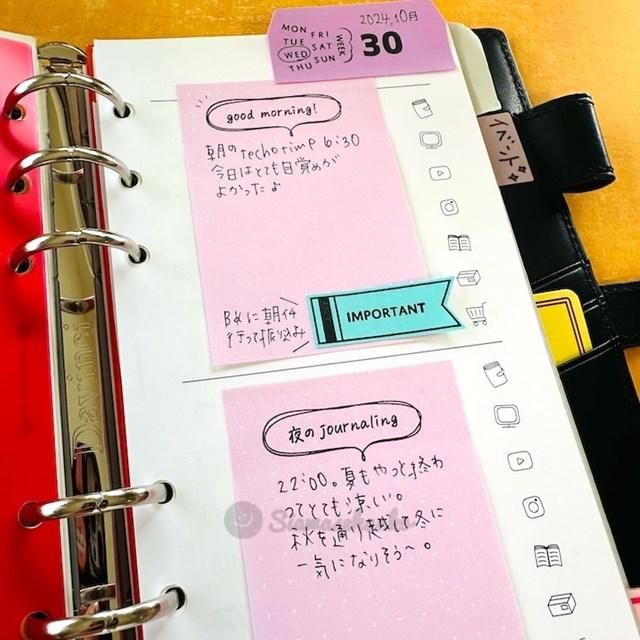 2024,10月
MON
TUE
WED
THU
FRI
SAT
SUN
WEEK
30
イベント
good morning!
朝の techo time 6:30
今日はとても目覚めが
よかったよ
IMPORTANT
行って振込み
夜の journaling
22:00。夏もやっと終わ
ってとても涼しい。
秋を通り越し冬に
一気になりそう〜。
Davinci